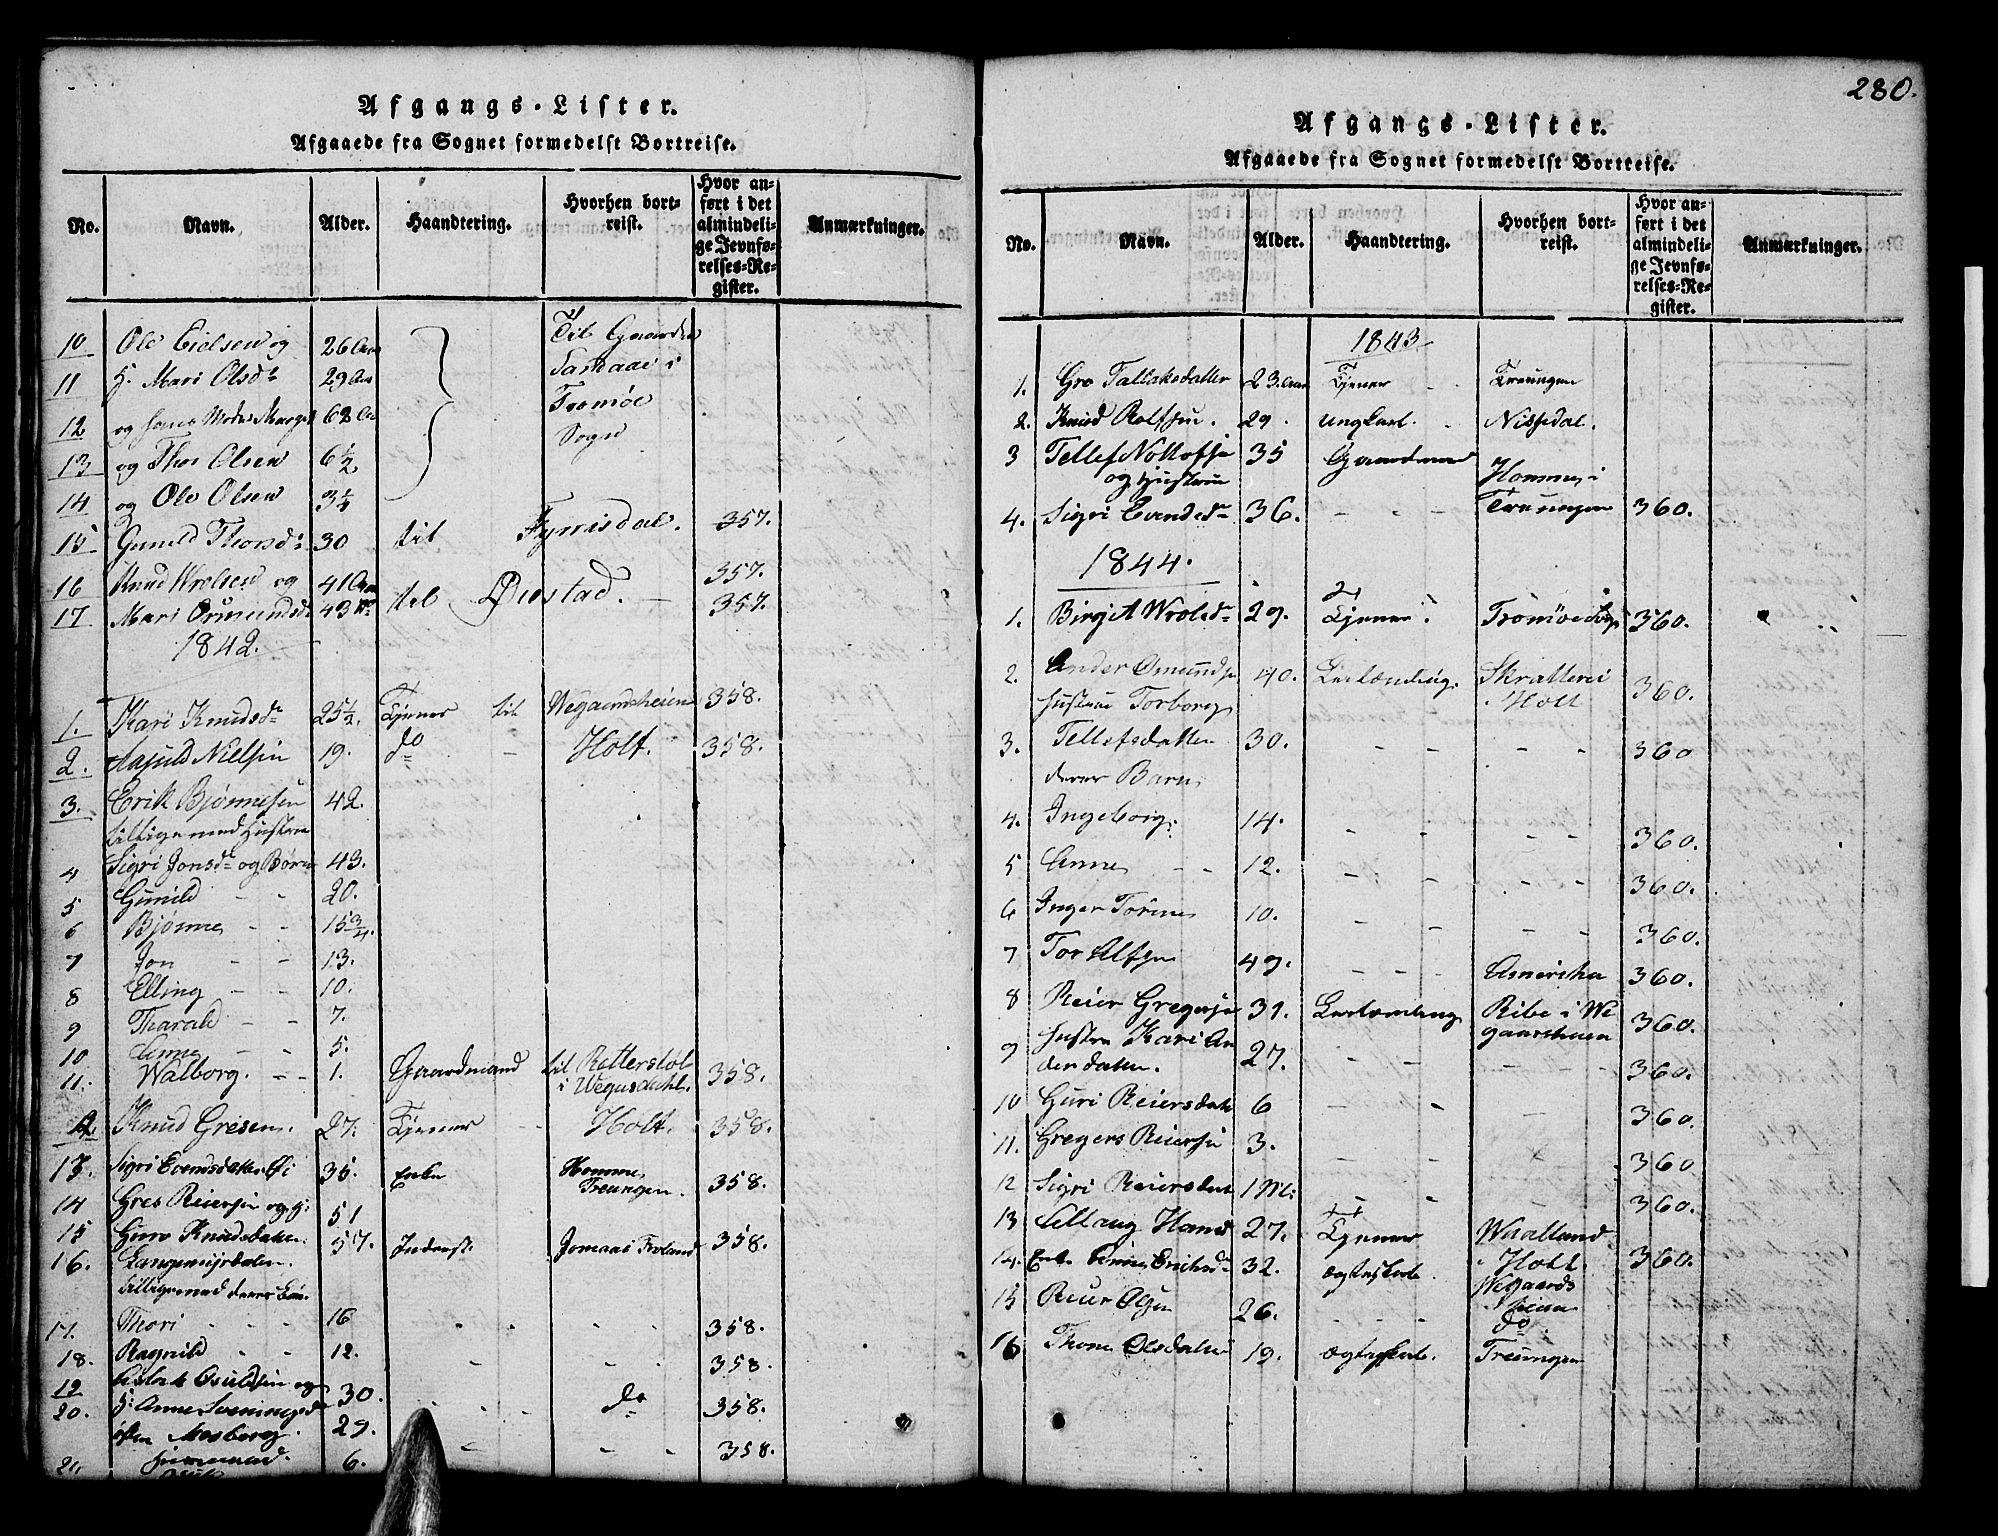 Afgangs-Lister.
Afgaaede fra Sognet formedelst Bortreise.
No. Navn. Alder. Haandtering. Hvorhen bortreist. Hvor anført i det almindelige Jevnførelses-Register. Anmærkninger.
10 Ole Eielsen og 26 Aar Til Gaarden
11 H. Mari Olsdr 29 Aar i
12 og hans Moder 62 Tromøe
13 og Thor Olsen 6½ Sogn
14 og Ole Olsen 3¼
15 Gunild Thorsdr 30 til Fyrrisdal. 357.
16 Knud Wrolsen og 41 Aar til Øiestad. 357.
17 Mari 43 do 357.
1842.
1. Kari Knudsdr 25½ Tjener til Wegaardsheien 358.
2. Aasuld Nielsen 19. do - Holt. 358.
3. Erik Bjønnesen 42.
tillige med Hustru
4 Sigri Jonsdr og Børn 43.
5 Gunild - - 20.
6 Bjønne - - 15¾.
7 Jon - - 13.
8 Elling - - 10.
9 Tharald - - 7.
10 Anne - - 5.
11. Walborg. - - 1. Gaardmand til
i Wegusdahl. 358.
12. Knud Gresen. 27. Tjener - Holt. 358.
13. Sigri Evensdatter 35. Enke Homme
Treungen. 358.
14 Gres Reiersen og H: 51
15 Guro Knudsdatter. 57. Inderst. Jomaas Froland 358.
16.
tillige med deres
17. Thori - - - 16 - - 358.
18. Ragnild - - 12. - - - 358.
19 Aslak Osuldsen og 30. - - do 358.
20. H: Anne 29.
- - - 358.
21. 6.
280.
Afgangs-Lister.
Afgaaede fra Sognet formedelst Bortreise.
No. Navn. Alder. Haandtering. Hvorhen bortreist. Hvor anført i det almindelige Jevnførelses-Register. Anmærkninger.
1843
1. Gro Tallaksdatter 23. Aar Tjener - Treungen
2. Knud Rolfsen. 29. Ungkarl. - Nissedal.
3 Tellef 35 Gaardmand Homme i
og Hustrue
4. Sigri Evensdr 36. - - - Treungen 360.
1844.
1. Birgit Wrolsdr 29. Tjener Tromøe Sogn 360.
2. Anders Osmundsen 40. Skratterei
Hustrue Torborg Holt 360.
3. Tellefsdatter 30. - - - - 360
deres Barn
4. Ingeborg. 14. - - - - 360.
5 Anne - - 12. - - - - - 360.
6 Inger 10. - - - - 360.
7 Tor Alfsen 49. - - - Amerika 360.
8 Reier Gregersen 31. Ribe i We
gaardsheien 360.
9 Hustru Kari An
dersdatter. 27. - - - - - 360.
10 Guri Reiersdatter 6 - - - - 360.
11. Gregers Reiersen 3. - - - - 360
12 Sigri Reiersdatter - - - 360.
13 Hans 27. Tjener Waaland
Holt. 360.
14. Enke Anne Eriksdr 32. Wegaards
heien
15 Reier Olsen 26. - - - do
16 Thone Olsdatter 19. Treungen